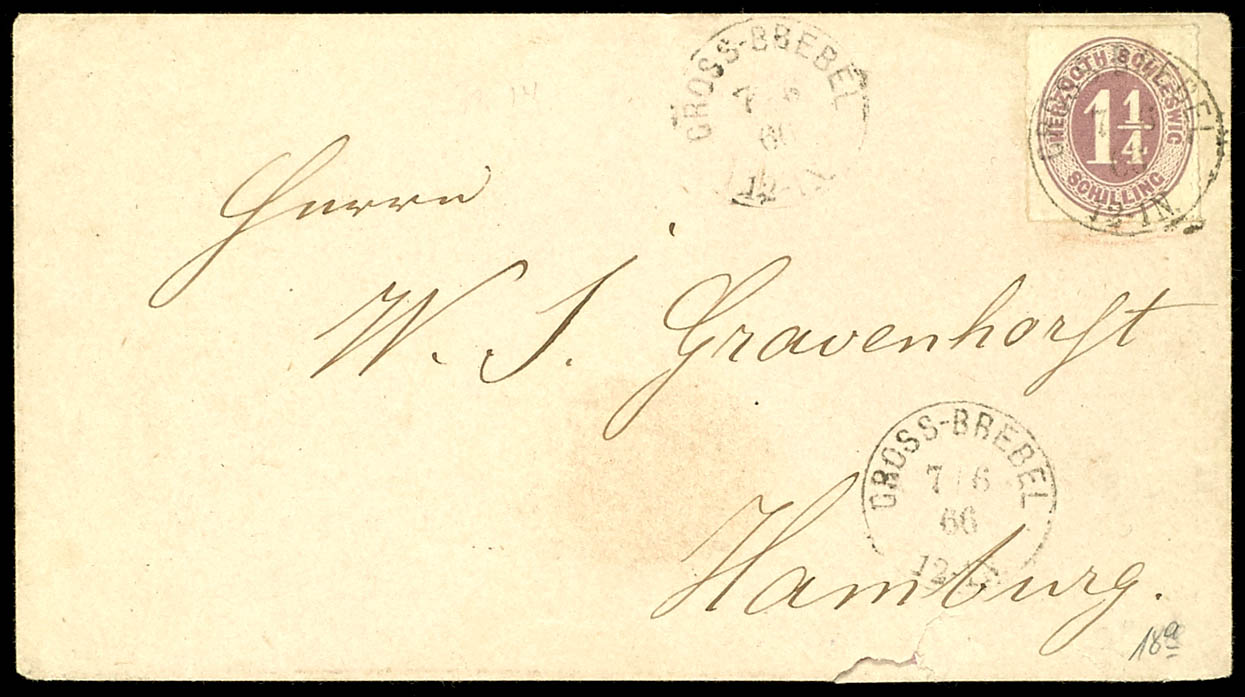 GROSS-BREBEL
7 6
66
12-1N.
HERZOGTH. SCHLESWIG
1 1/4
SCHILLING
12-1N.
Herrn
W. S. Gravenhorst
GROSS-BREBEL
7 6
66
12-1N
Hamburg.
18a